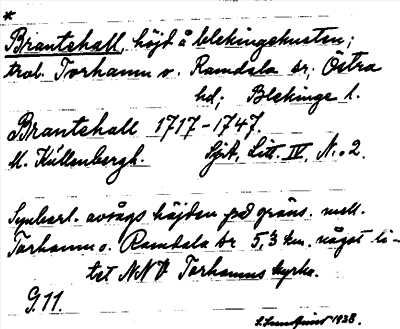 *
Brantehall, höjd å blekingekusten;
trol. Torhamn o. Ramdala sr, Östra
hd; Blekinge l.
Brantehall 1717-1747.
M. Kullenbergh. Sjök. Litt. IV, N.o 2.
Synbarl. avsågs höjden på gräns. mell.
Torhamn o. Ramdala sr 5,3 km. något li-
tet NNV Torhamns kyrka.
G.11.
S. Lundquist 1938.